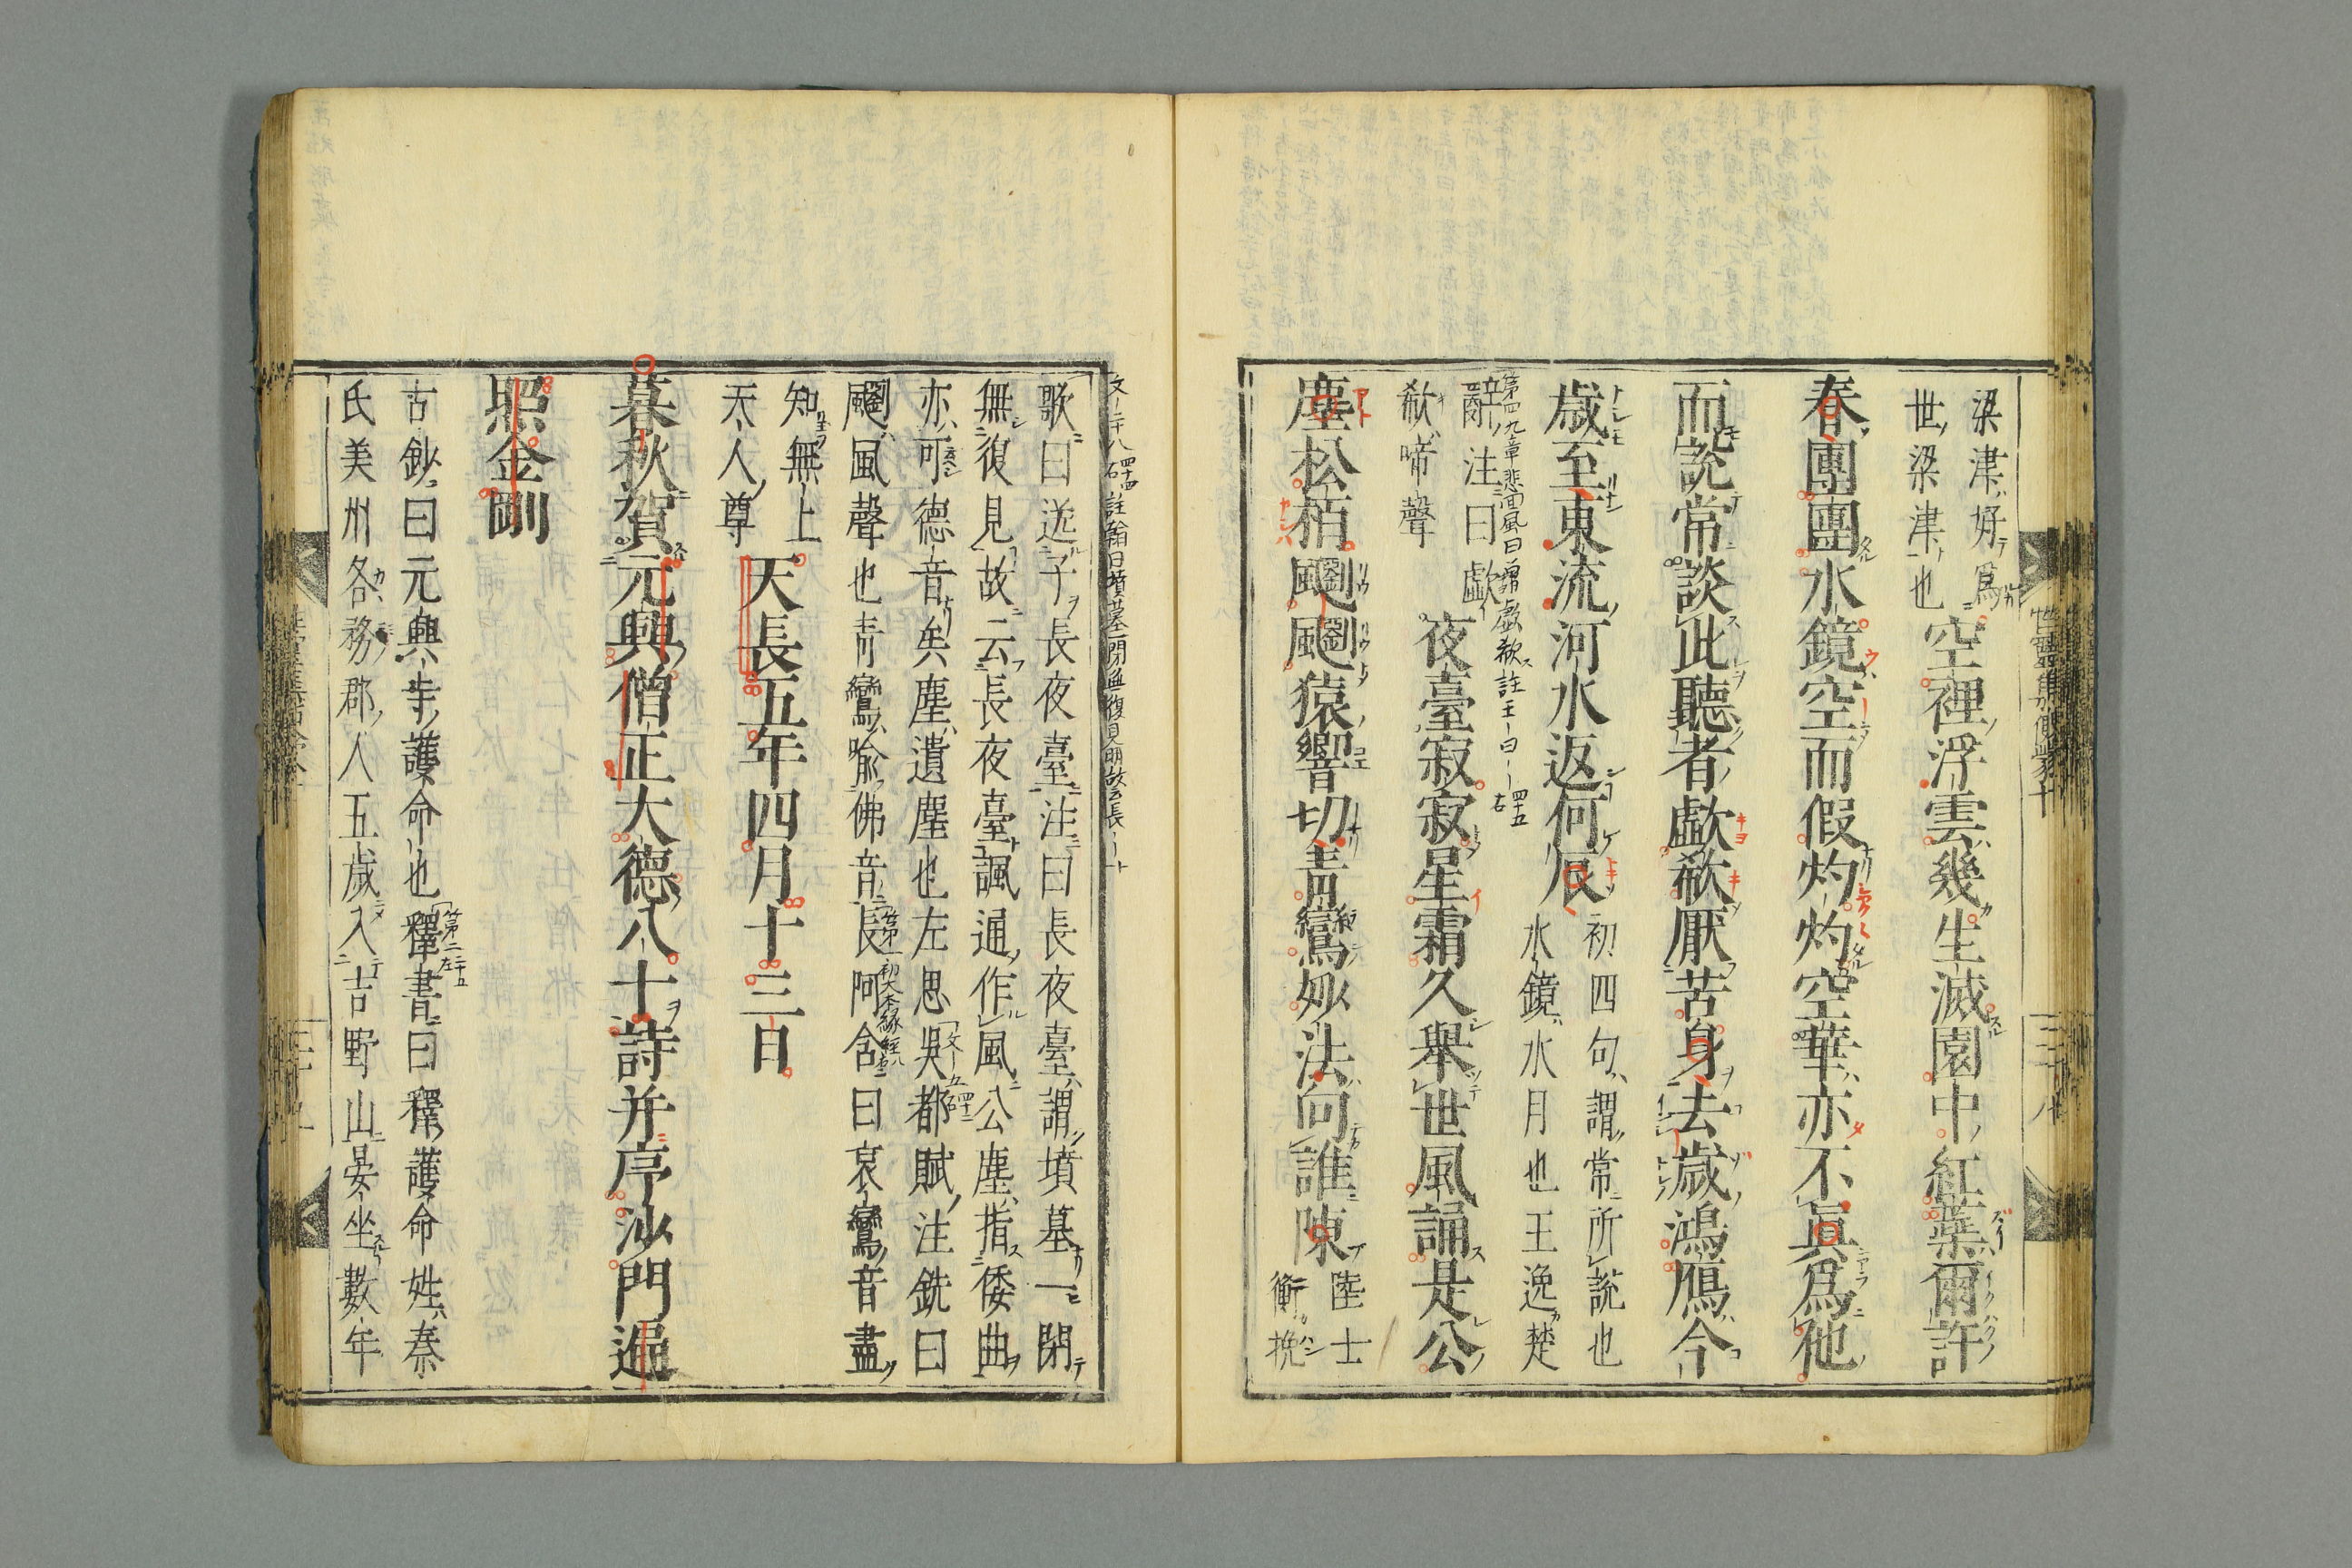 梁津好爲
世梁津也
空裡浮雲幾生滅園中紅葉爾許
春團團水鏡空而假灼灼空華亦不眞爲他
而説常談此聽者歔欷厭苦身去歳鴻鴈今
歳至東流河水返何辰
初四句謂常所説也
水鏡水月也王逸楚
辭注曰歔
欷啼聲
夜臺寂寂星霜久舉世風誦是公
塵松栢飀飀猿響切靑鸞妙法向誰陳
陸士
衡挽
歌曰送子長夜臺注曰長夜臺謂墳墓一閉
無復見故云長夜臺諷通作風公塵指倭曲
亦可德音矣塵遺塵也左思吳都賦注銑曰
飀風聲也靑鸞喩佛音長阿含曰哀鸞音盡
知無上
天人尊
天長五年四月十三日
暮秋賀元興僧正大德八十詩并序沙門遍
照金剛
古鈔曰元興寺護命也釋書曰釋護命姓秦
氏美州各務郡人五歳入吉野山晏坐數年